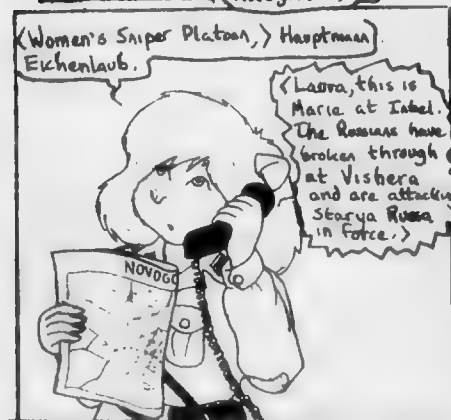 <Women's Sniper Platoon,> Hauptmann
Eichenlaub.
<Laura, this is
Marie at Inbel.
The Russians have
broken through
at Vishera
and are attackin
Starya Russa
in Force.>
NOVOGO